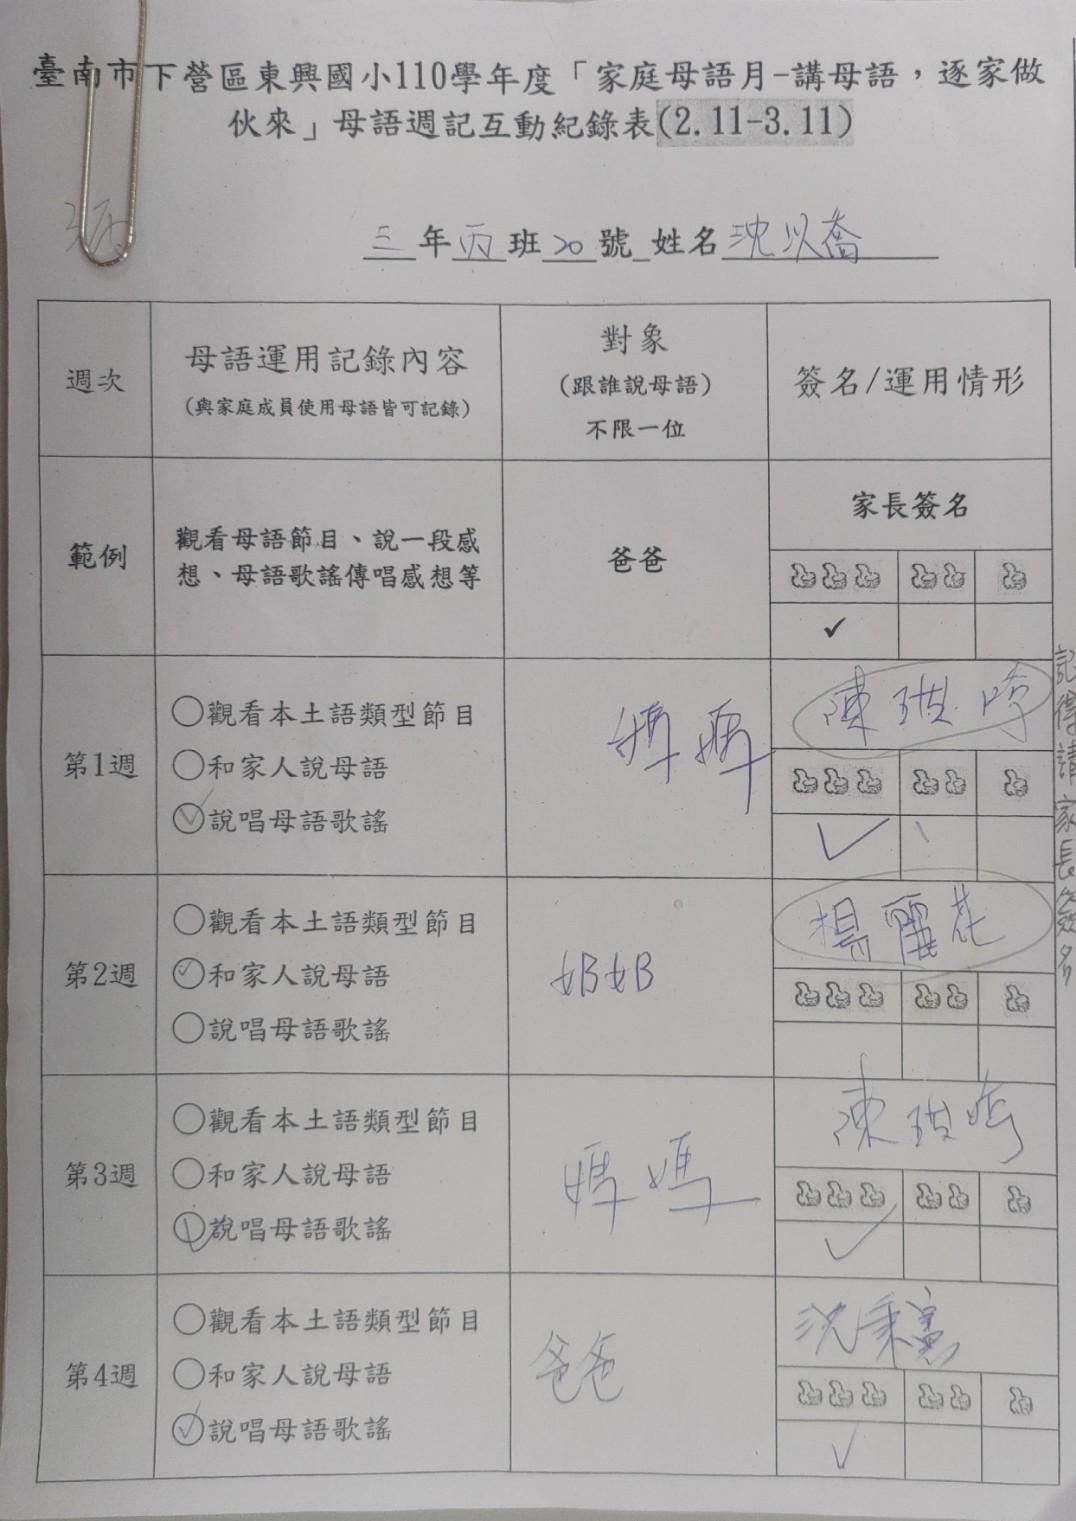 臺南市下營區東興國小110學年度「家庭母語月-講母語，逐家做
伙來」母語週記互動紀錄表(2.11-3.11)
三年丙班20號 姓名沈以喬
週次
母語運用記錄內容
(與家庭成員使用母語皆可記錄)
對象
(跟誰說母語)
不限一位
簽名/運用情形
範例
觀看母語節目、說一段感
想、母語歌謠傳唱感想等
爸爸
家長簽名
第1週
○觀看本土語類型節目
○和家人說母語
○說唱母語歌謠
媽媽
陳琪
第2週
○觀看本土語類型節目
○和家人說母語
○說唱母語歌謠
奶奶
楊麗花
第3週
○觀看本土語類型節目
○和家人說母語
○說唱母語歌謠
媽媽
陳琪
第4週
○觀看本土語類型節目
○和家人說母語
○說唱母語歌謠
爸爸
沈秉憲
記得請家長簽名